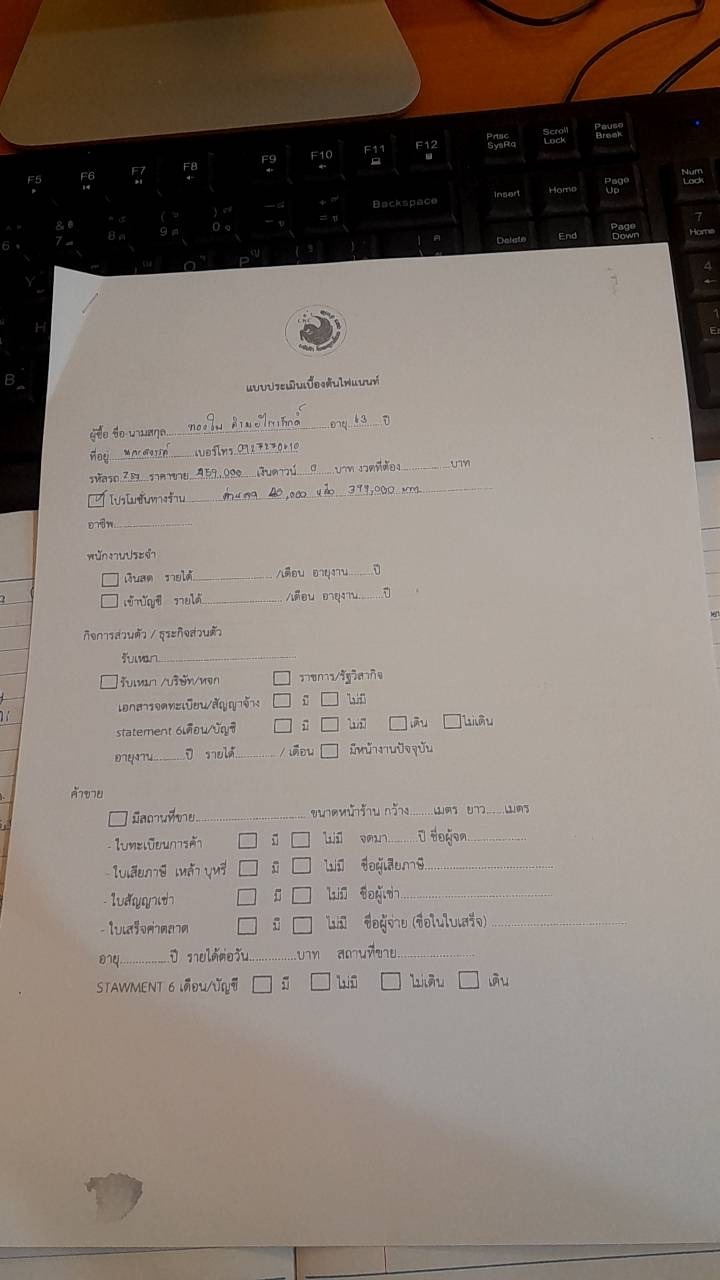 F5 F6 F7 F8 F9 F10 F11 F12 Prtsc SysRq Scroll Lock Pause Break
Backspace Insert Home Page Up Num Lock
Delete End Page Down 7 Home
แบบประเมินเบื้องต้นไฟแนนท์
ผู้ซื้อ ชื่อ-นามสกุล อายุ 63 ปี
ที่อยู่ นครสวรรค์ เบอร์โทร
รหัสรถ ราคาขาย 459,000 เงินดาวน์ 0 บาท งวดที่ต้อง บาท
โปรโมชั่นทางร้าน ส่วนลด 399,000 บาท
อาชีพ
พนักงานประจำ
เงินสด รายได้ /เดือน อายุงาน ปี
เข้าบัญชี รายได้ /เดือน อายุงาน ปี
กิจการส่วนตัว / ธุระกิจส่วนตัว
รับเหมา
รับเหมา /บริษัท/หจก ราชการ/รัฐวิสากิจ
เอกสารจดทะเบียน/สัญญาจ้าง มี ไม่มี
statement 6เดือน/บัญชี มี ไม่มี เดิน ไม่เดิน
อายุงาน ปี รายได้ / เดือน มีหน้างานปัจจุบัน
ค้าขาย
มีสถานที่ขาย ขนาดหน้าร้าน กว้าง เมตร ยาว เมตร
- ใบทะเบียนการค้า มี ไม่มี จดมา ปี ชื่อผู้จด
- ใบเสียภาษี เหล้า บุหรี่ มี ไม่มี ชื่อผู้เสียภาษี
- ใบสัญญาเช่า มี ไม่มี ชื่อผู้เช่า
- ใบเสร็จค่าตลาด มี ไม่มี ชื่อผู้จ่าย (ชื่อในใบเสร็จ)
อายุ ปี รายได้ต่อวัน บาท สถานที่ขาย
STAWMENT 6 เดือน/บัญชี มี ไม่มี ไม่เดิน เดิน